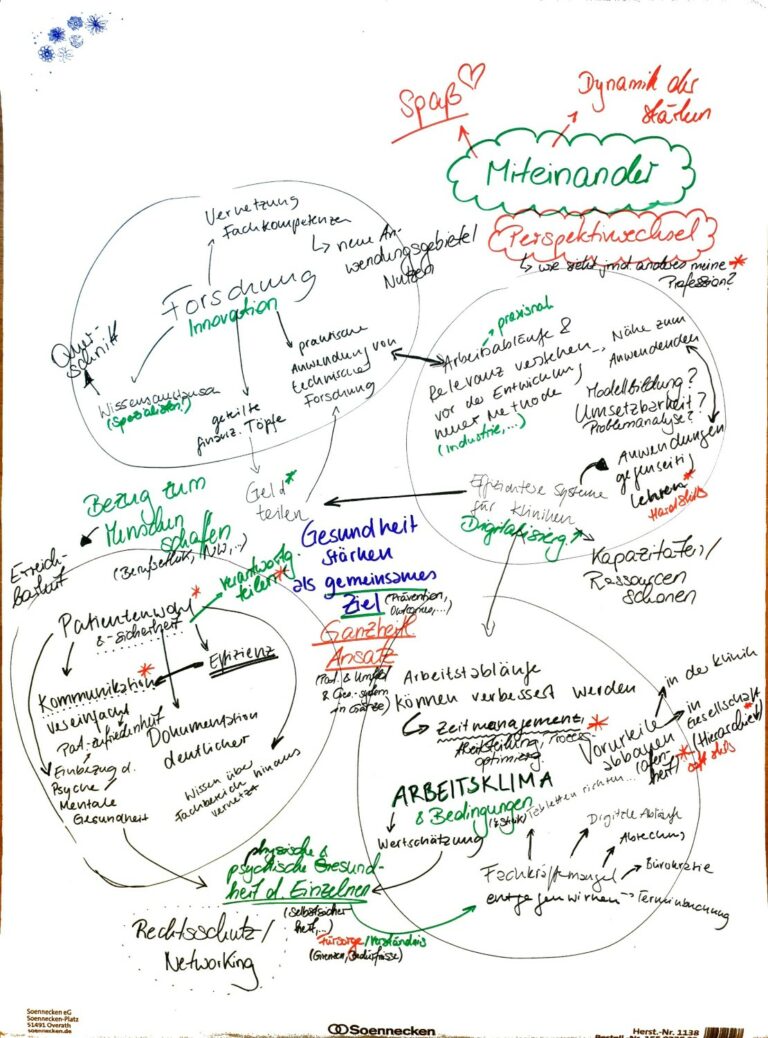 Spaß
Dynamik der
Stärken
Miteinander
Perspektivwechsel
↳ wie sieht jmd. anderes meine *
Profession?
Vernetzung
Fachkompetenzen
↳ neue An-
wendungsgebiete/
Nutzen
Forschung
Innovation
Quer-
schnitt
Wissensaustausch
(Spezialisten!)
geteilte
finanz. Töpfe
praktische
Anwendung von
technischer
Forschung
Geld *
teilen
praxisnah
Arbeitsabläufe &
Relevanz verstehen
vor der Entwicklung
neuer Methode
(Industrie,...)
Nähe zum
Anwendenden
Modellbildung?
Umsetzbarkeit?
Problemanalyse?
Anwendungen
gegenseitig
lehren *
Hard Skills
Effizientere Systeme
für Kliniken
Digitalisierg.?
Kapazitäten/
Ressourcen
schonen
Bezug zum
Menschen
schaffen
(Berufsethik, NW,..)
Erreich-
barkeit
Gesundheit
stärken
als gemeinsames
Ziel (Prävention,
Outcome,...)
Ganzheitl.
Ansatz
(Pat. & Umfeld
& Ges.-system
in Gänze)
verantwortg.
teilen *
Patientenwohl *
& -sicherheit
Effizienz
Kommunikation *
vereinfacht
Pat.-zufriedenheit
Einbezug d.
Psyche/
Mentale
Gesundheit
Dokumentation
deutlicher
Wissen über
Fachbereich hinaus
vernetzt
Arbeitsabläufe
können verbessert werden
↳ Zeitmanagement, *
Arbeitsteilung, Prozess-
optimierg.
Vorurteile
abbauen
(Offen-
heit) *
in der Klinik
in
Gesellschaft
(Hierarchie) *
Soft Skills
ARBEITSKLIMA
& Bedingungen
Tabletten richten...
Wertschätzung
Fachkräftemangel
entgegenwirken
Digitale Abläufe
Abrechng
Bürokratie
Terminbuchung
physische &
psychische Gesund-
heit d. Einzelnen
(Selbstsicher-
heit,...)
Fürsorge/Verständnis
(Grenzen, Bedürfnisse)
Rechtsschutz/
Networking
Soennecken eG
Soennecken-Platz
51491 Overath
soennecken.de
Soennecken
Herst.-Nr. 1138